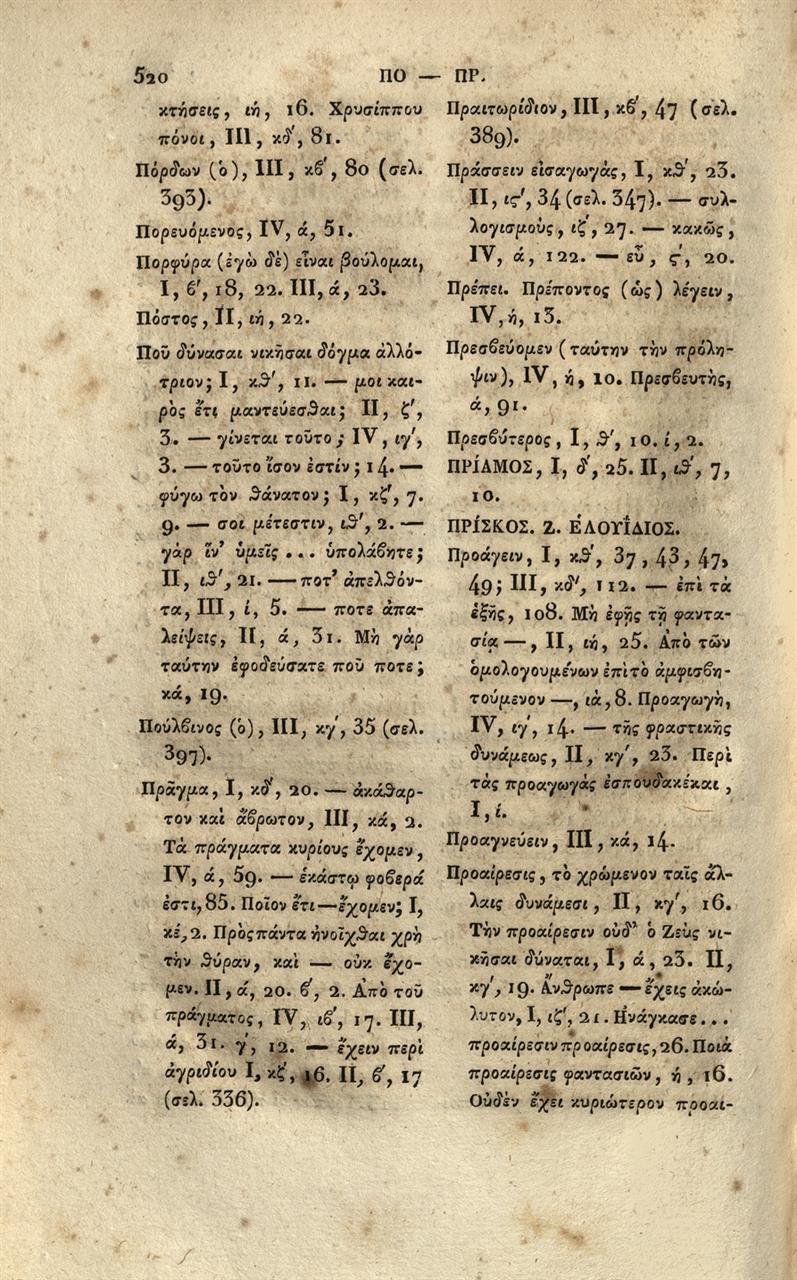 520 ΠΟ — ΠΡ.
κτήσεις, ιή, 16. Χρυσίππου
πόνοι, III, κδ', 81.
Πόρδων (ὁ), III, κϐ', 80 (σελ.
393).
Πορευόμενος, IV, ά, 51.
Πορφύρα (ἐγὼ δὲ) εἶναι βούλομαι,
I, ϐ', 18, 22. III, ά, 23.
Πόστος, II, ιή, 22.
Ποῦ δύνασαι νικῆσαι δόγμα ἀλλό-
τριον; I, κϑ', 11. — μοι και-
ρὸς ἔτι μαντεύεσϑαι; II, ζ',
3. — γίνεται τοῦτο; IV, ιγ',
3. — τοῦτο ἴσον ἐστίν; 14. —
φύγω τὸν ϑάνατον; I, κζ', 7.
9. — σοι μέτεστιν, ιϑ', 2. —
γὰρ ἵν' ὑμεῖς ... ὑπολάϐητε;
II, ιϑ', 21. — ποτ' ἀπελϑόν-
τα, III, ί, 5. — ποτε ἀπα-
λείψεις, II, ά, 31. Μὴ γὰρ
ταύτην ἐφοδεύσατε ποῦ ποτε;
κά, 19.
Πούλϐινος (ὁ), III, κγ', 35 (σελ.
397).
Πρᾶγμα, I, κδ', 20. — ἀκάϑαρ-
τον καὶ ἄϐρωτον, III, κά, 2.
Τὰ πράγματα κυρίους ἔχομεν,
IV, ά, 59. — ἑκάστῳ φοϐερά
ἐστι, 85. Ποῖον ἔτι — ἔχομεν; I,
κέ, 2. Πρὸς πάντα ἠνοῖχϑαι χρὴ
τὴν ϑύραν, καὶ — οὐκ ἔχο-
μεν. II, ά, 20. ϐ', 2. Ἀπὸ τοῦ
πράγματος, IV, ιϐ', 17. III,
ά, 31. γ', 12. — ἔχειν περὶ
ἀγριδίου I, κζ', 16. II, ϐ', 17
(σελ. 336).
Πραιτωρίδιον, III, κϐ', 47 (σελ.
389).
Πράσσειν εἰσαγωγὰς, I, κϑ', 23.
II, ις', 34 (σελ. 347). — συλ-
λογισμοὺς, ιζ', 27. — κακῶς,
IV, ά, 122. — εὖ, ς', 20.
Πρέπει. Πρέποντος (ὡς) λέγειν,
IV, ή, 13.
Πρεσϐεύομεν (ταύτην τὴν πρόλη-
ψιν), IV, ή, 10. Πρεσϐευτὴς,
ά, 91.
Πρεσϐύτερος, I, ϑ', 10. ί, 2.
ΠΡΙΑΜΟΣ, I, δ', 25. II, ιϑ', 7,
10.
ΠΡΙΣΚΟΣ. Ζ. ἘΛΟΥΪΔΙΟΣ.
Προάγειν, I, κϑ', 37, 43, 47,
49; III, κδ', 112. — ἐπὶ τὰ
ἑξῆς, 108. Μὴ ἐφῇς τῇ φαντα-
σίᾳ —, II, ιή, 25. Ἀπὸ τῶν
ὁμολογουμένων ἐπὶ τὸ ἀμφισϐη-
τούμενον —, ιά, 8. Προαγωγὴ,
IV, ιγ', 14. — τῆς φραστικῆς
δυνάμεως, II, κγ', 23. Περὶ
τὰς προαγωγὰς ἐσπουδακέκαι,
I, ί.
Προαγνεύειν, III, κά, 14.
Προαίρεσις, τὸ χρώμενον ταῖς ἄλ-
λαις δυνάμεσι, II, κγ', 16.
Τὴν προαίρεσιν οὐδ' ὁ Ζεὺς νι-
κῆσαι δύναται, I, ά, 23. II,
κγ', 19. Ἄνϑρωπε — ἔχεις ἀκώ-
λυτον, I, ιζ', 21. Ἠνάγκασε...
προαίρεσιν προαίρεσις, 26. Ποιὰ
προαίρεσις φαντασιῶν, ή, 16.
Οὐδὲν ἔχει κυριώτερον προαι-